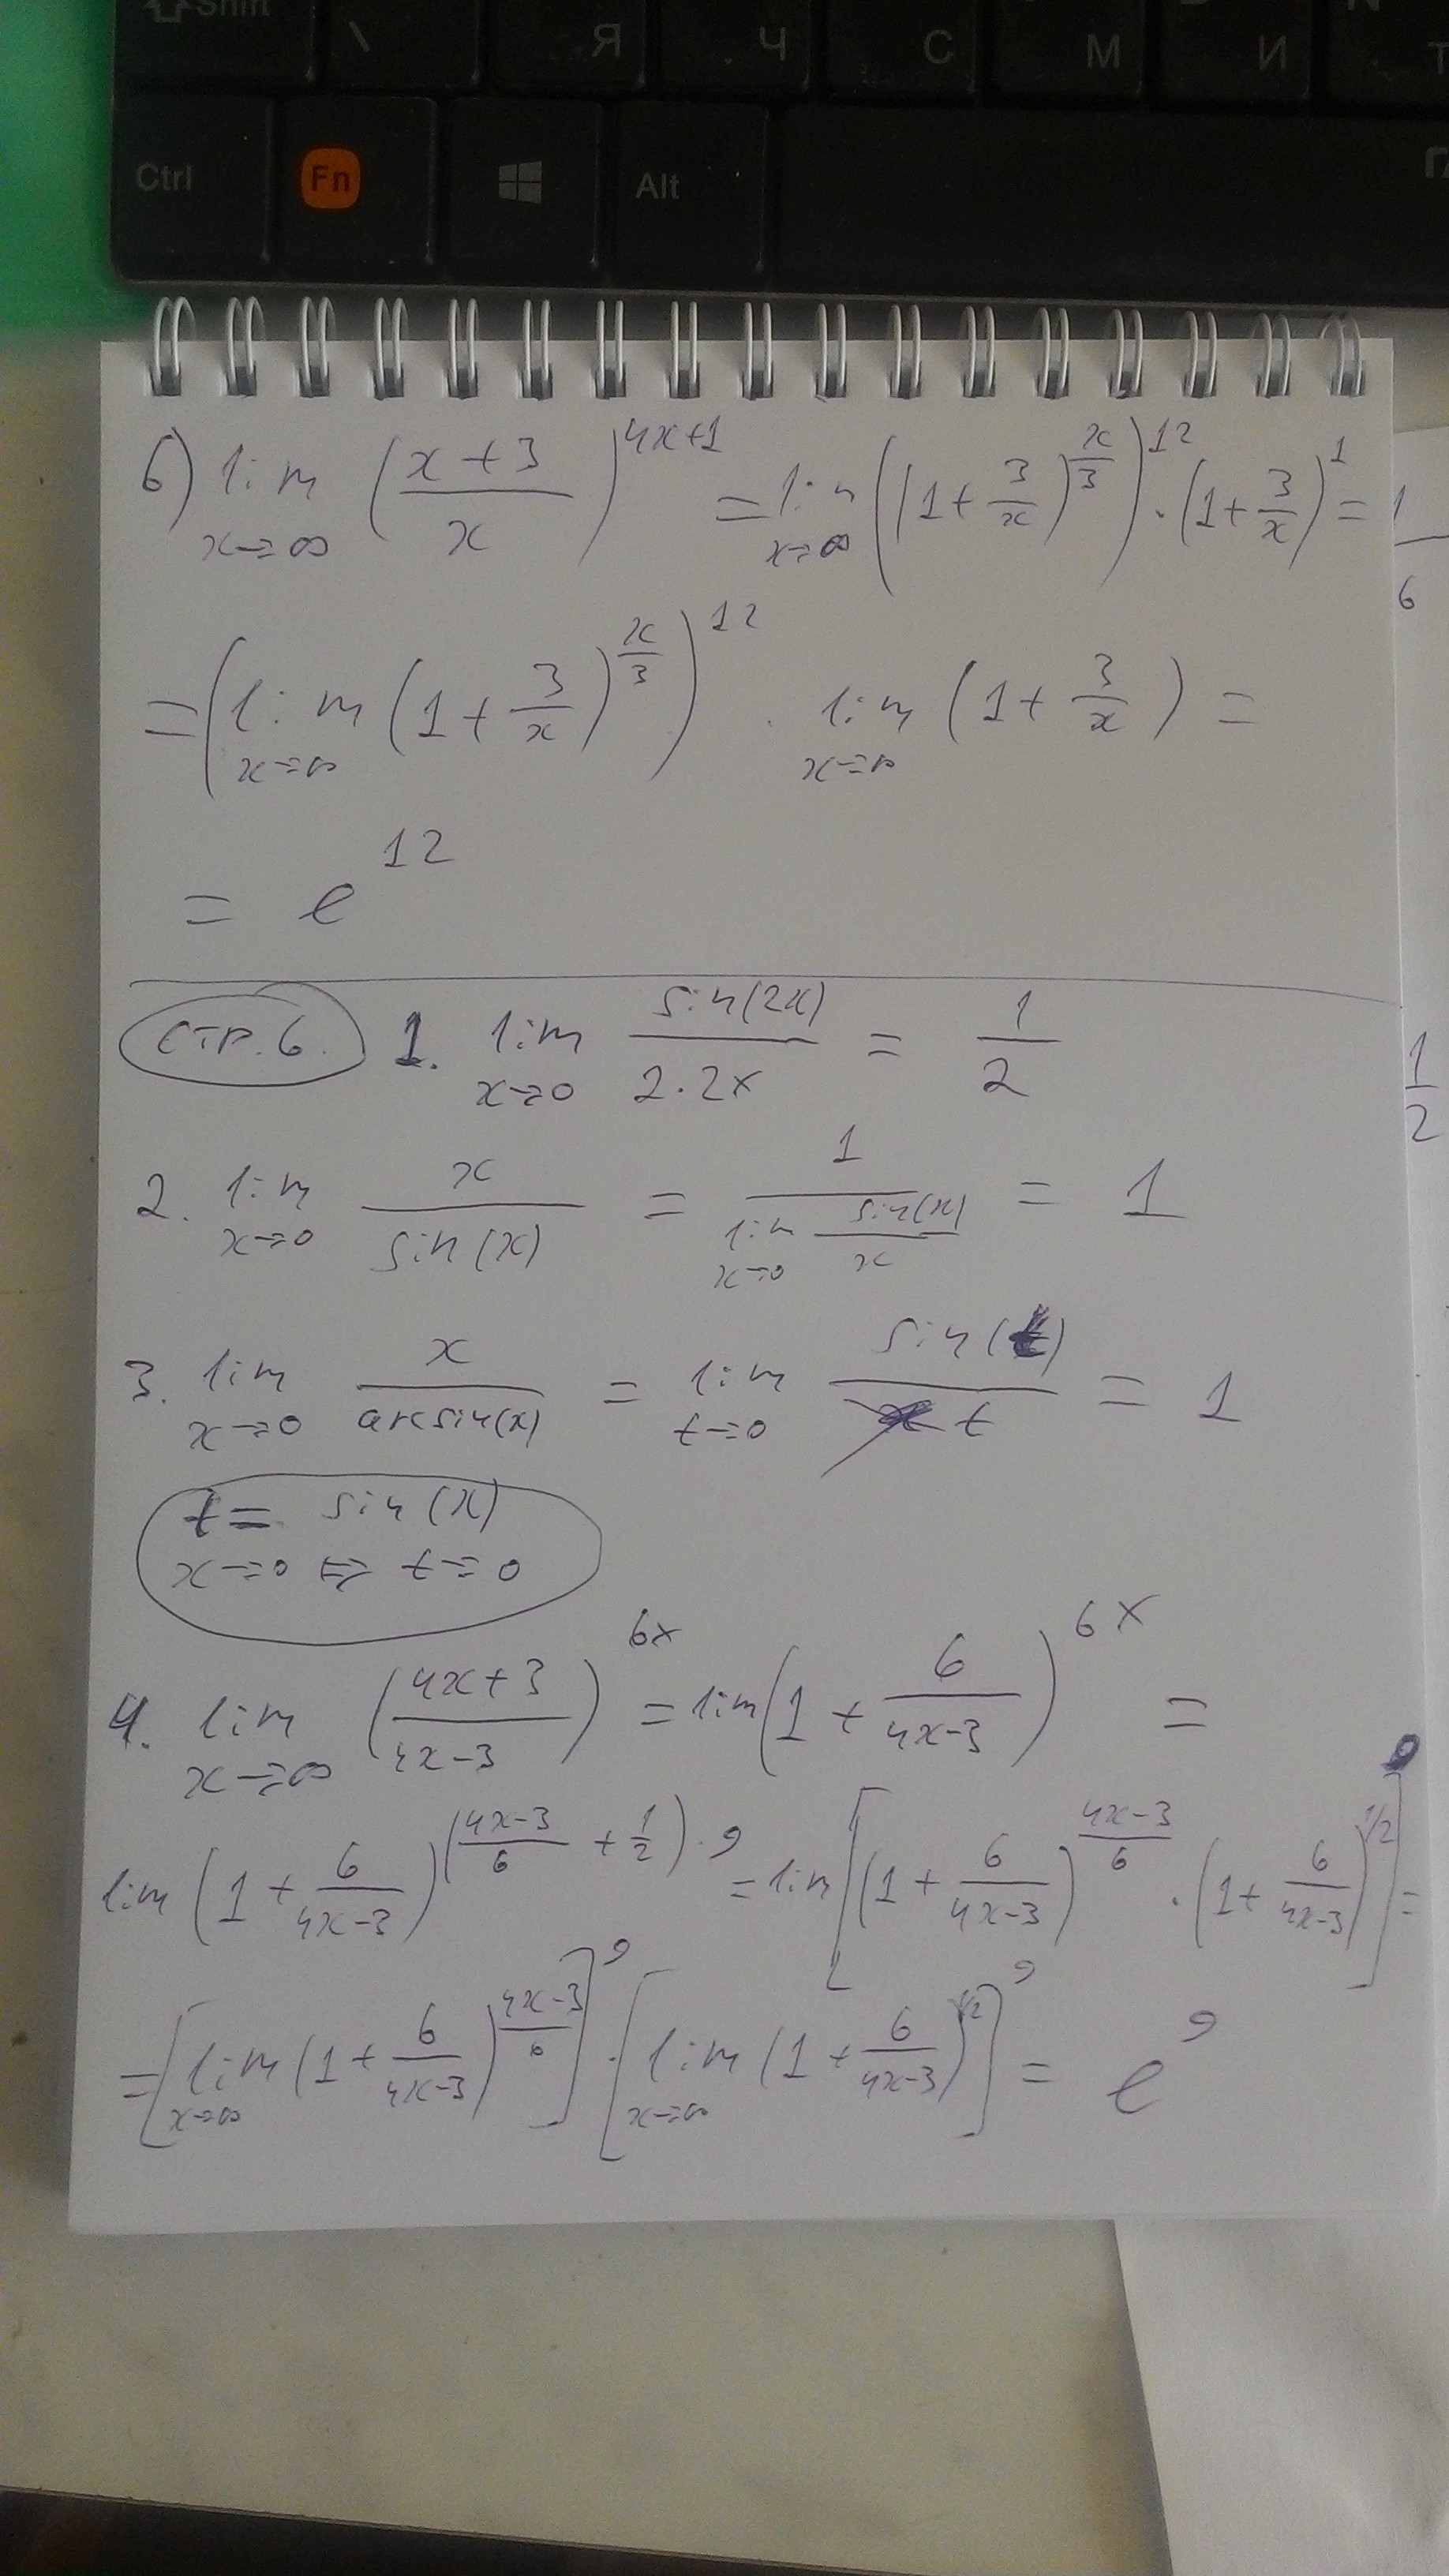 6) lim x→∞ ((x+3)/x)^(4x+1) = lim x→∞ ((1+3/x)^(x/3))^12 · (1+3/x)^1 =
= (lim x→∞ (1+3/x)^(x/3))^12 · lim x→∞ (1+3/x) =
= e^12
стр. 6. 1. lim x→0 sin(2x)/(2·2x) = 1/2
2. lim x→0 x/sin(x) = 1/(lim x→0 sin(x)/x) = 1
3. lim x→0 x/arcsin(x) = lim t→0 sin(t)/t = 1
t = sin(x)
x→0 ⇔ t→0
4. lim x→∞ ((4x+3)/(4x-3))^(6x) = lim (1+6/(4x-3))^(6x) =
lim (1+6/(4x-3))^(((4x-3)/6+1/2)·9) = lim [(1+6/(4x-3))^((4x-3)/6) · (1+6/(4x-3))^(1/2)]^9 =
= [lim x→∞ (1+6/(4x-3))^((4x-3)/6)]^9 · [lim x→∞ (1+6/(4x-3))^(1/2)]^9 = e^9
1
6
1
2
Ctrl
Fn
Alt
Shift
/
Я
Ч
С
М
И
Т